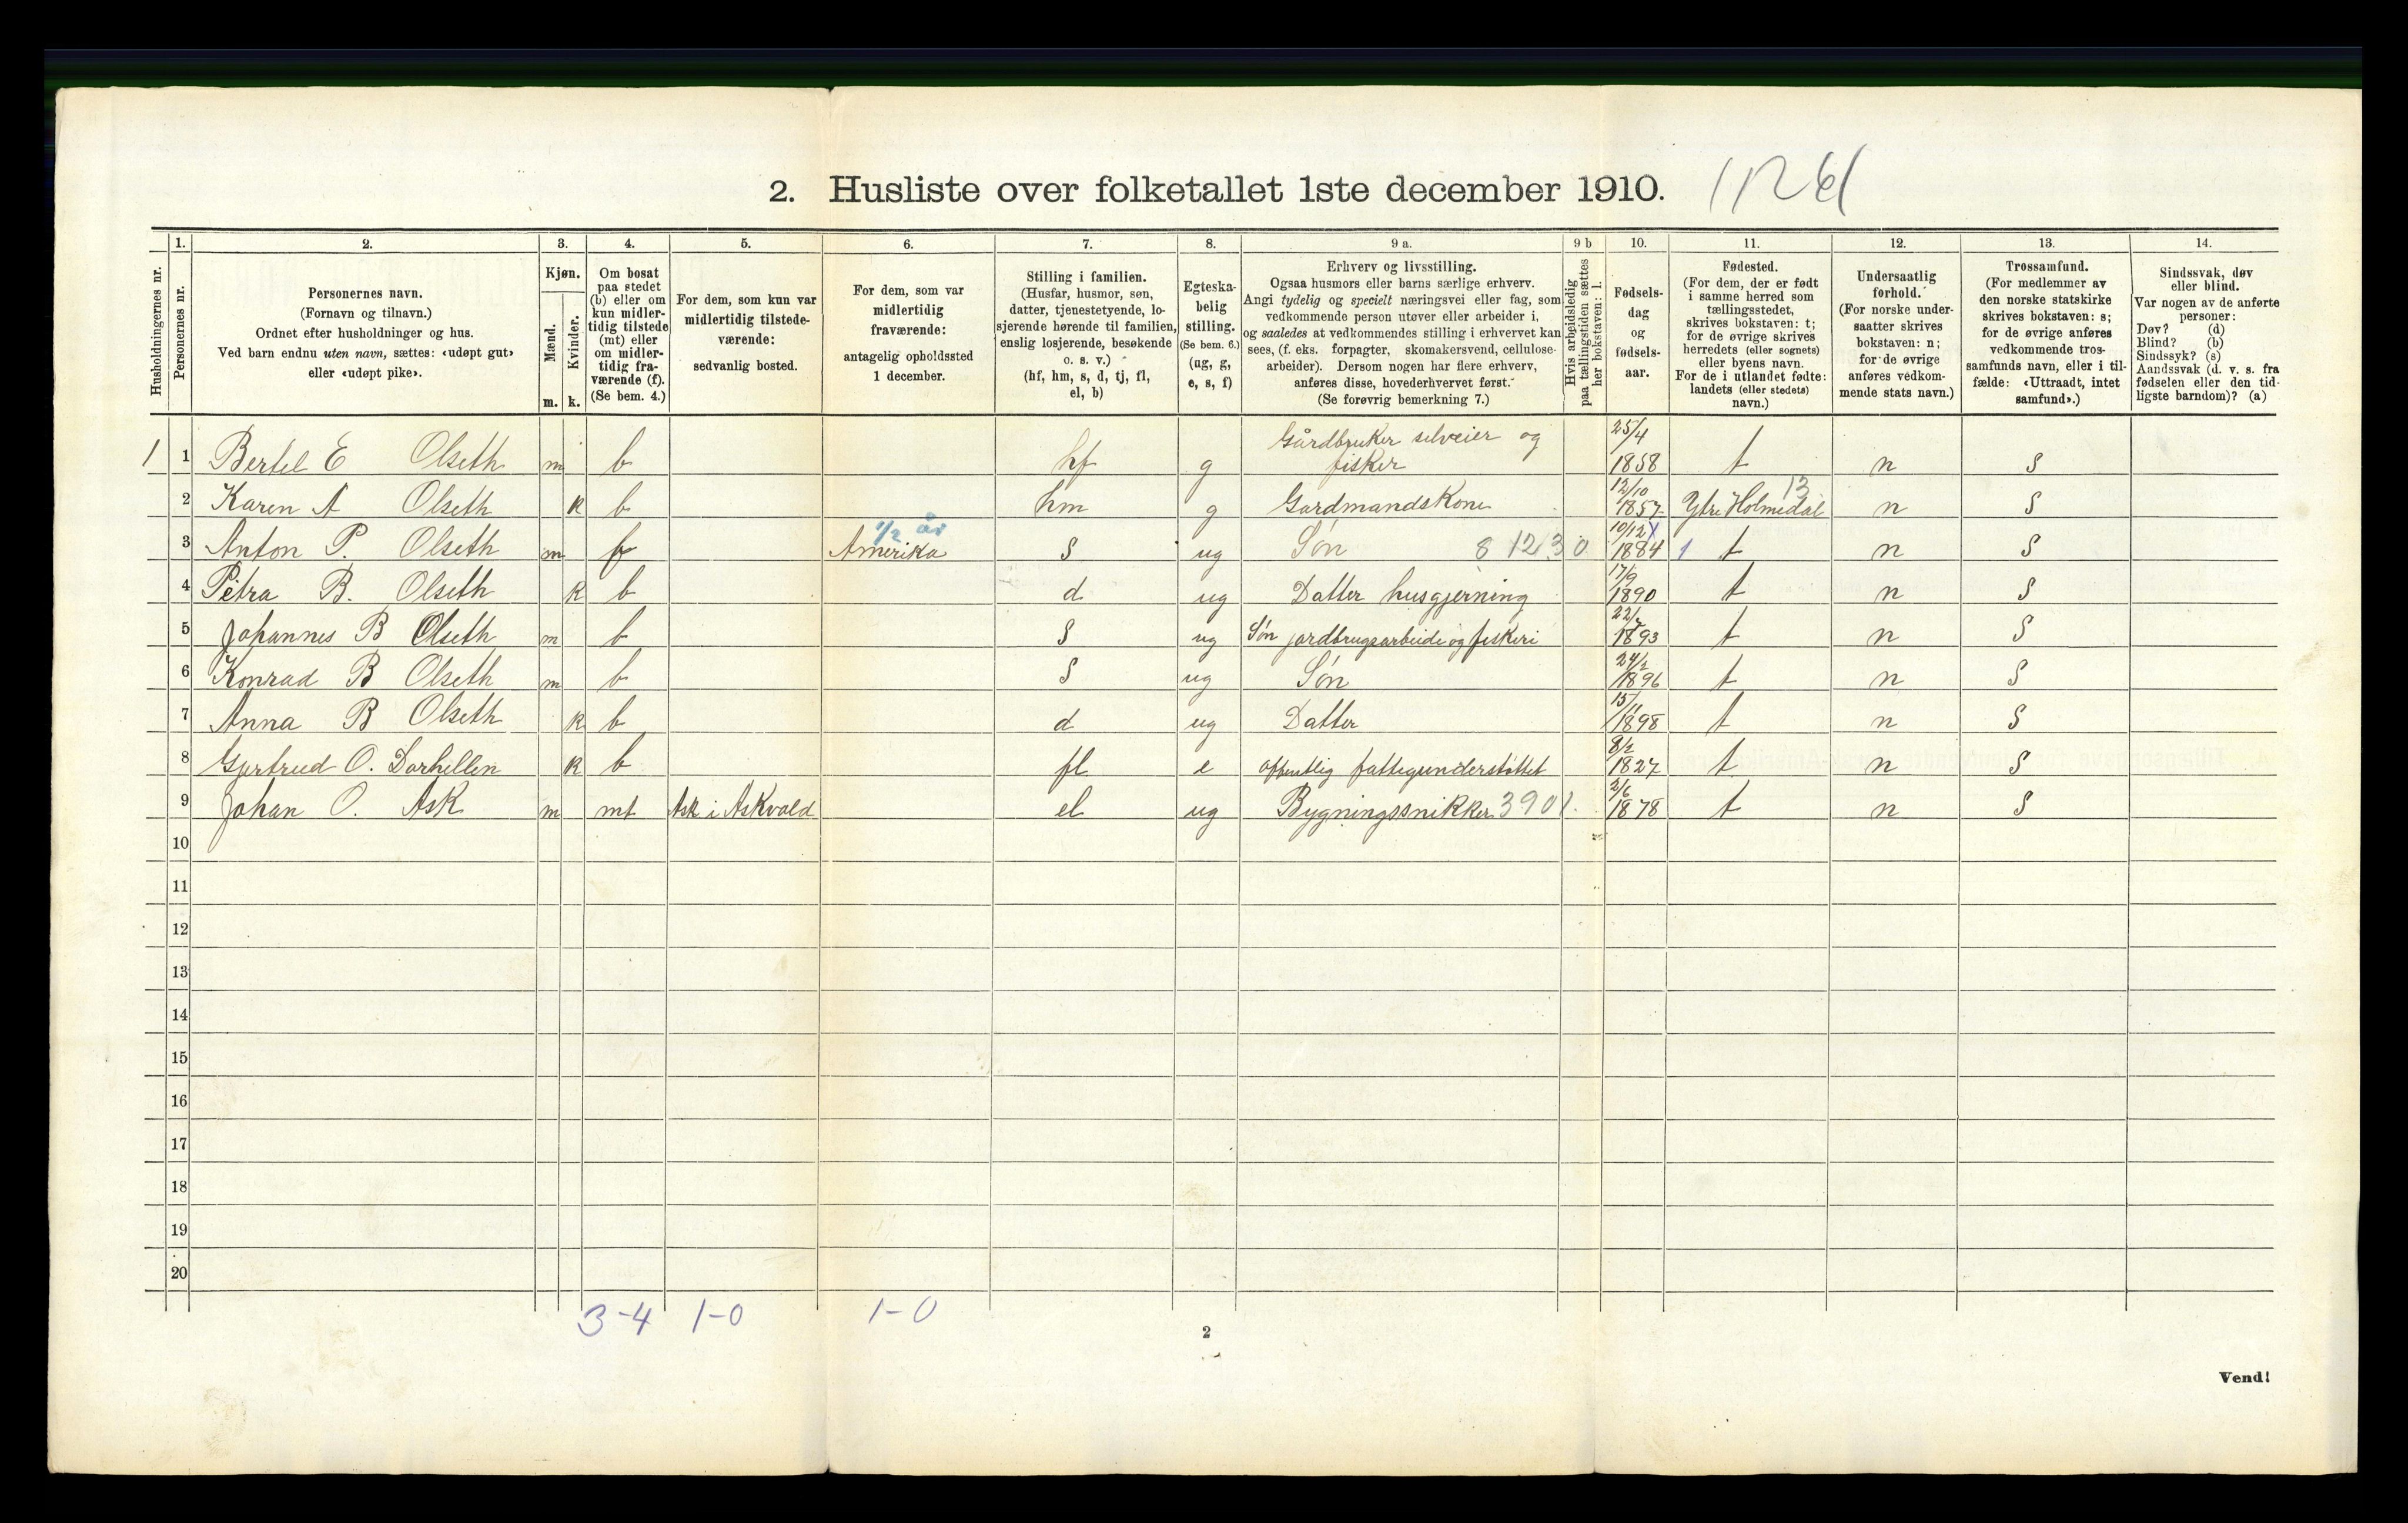 2. Husliste over folketallet 1ste december 1910.
Husholdningernes nr.
1. 2. 3. 4. 5. 6. 7. 8. 9 a. 9 b 10. 11. 12. 13. 14.
Personernes nr.
Personernes navn.
(Fornavn og tilnavn.)
Ordnet efter husholdninger og hus.
Ved barn endnu uten navn, sættes: «udøpt gut»
eller «udøpt pike».
Kjøn.
Mænd.
Kvinder.
m. k.
Om bosat
paa stedet
(b) eller om
kun midler-
tidig tilstede
(mt) eller
om midler-
tidig fra-
værende (f).
(Se bem. 4.)
For dem, som kun var
midlertidig tilstede-
værende:
sedvanlig bosted.
For dem, som var
midlertidig
fraværende:
antagelig opholdssted
1 december.
Stilling i familien.
(Husfar, husmor, søn,
datter, tjenestetyende, lo-
sjerende hørende til familien,
enslig losjerende, besøkende
o. s. v.)
(hf, hm, s, d, tj, fl,
el, b)
Egteska-
belig
stilling.
(Se bem. 6.)
(ug, g,
e, s, f)
Erhverv og livsstilling.
Ogsaa husmors eller barns særlige erhverv.
Angi tydelig og specielt næringsvei eller fag, som
vedkommende person utøver eller arbeider i,
og saaledes at vedkommendes stilling i erhvervet kan
sees, (f. eks. forpagter, skomakersvend, cellulose-
arbeider). Dersom nogen har flere erhverv,
anføres disse, hovederhvervet først.
(Se forøvrig bemerkning 7.)
Hvis arbeidsledig
paa tællingstiden sættes
her bokstaven: l.
Fødsels-
dag
og
fødsels-
aar.
Fødested.
(For dem, der er født
i samme herred som
tællingsstedet,
skrives bokstaven: t;
for de øvrige skrives
herredets (eller sognets)
eller byens navn.
For de i utlandet fødte:
landets (eller stedets)
navn.)
Undersaatlig
forhold.
(For norske under-
saatter skrives
bokstaven: n;
for de øvrige
anføres vedkom-
mende stats navn.)
Trossamfund.
(For medlemmer av
den norske statskirke
skrives bokstaven: s;
for de øvrige anføres
vedkommende tros-
samfunds navn, eller i til-
fælde: «Uttraadt, intet
samfund».)
Sindssvak, døv
eller blind.
Var nogen av de anførte
personer:
Døv? (d)
Blind? (b)
Sindssyk? (s)
Aandssvak (d. v. s. fra
fødselen eller den tid-
ligste barndom)? (a)
1 1 Bertel E Olseth m b hf g Gårdbruker selveier og fisker 25/4 1858 t n s
2 Karen A Olseth k b hm g Gardmandskone 12/10 1857 Ytre Holmedal 13 n s
3 Anton P. Olseth m f Amerika 1/2 år s ug Søn 8 12 3 0 10/12 1884 1 t n s
4 Petra B. Olseth k b d ug Datter husgjerning 17/9 1890 t n s
5 Johannes B Olseth m b s ug Søn jordbrugsarbeide og fiskeri 1893 t n s
6 Konrad B Olseth m b s ug Søn 24/2 1896 t n s
7 Anna B Olseth k b d ug Datter 15/11 1898 t n s
8 Gjertrud O. Dorhellen k b fl e offentlig fattigunderstøttet 8/2 1827 t n s
9 Johan O. Ask m mt Ask i Askvold el ug Bygningssnikker 3901. 2/6 1878 t n s
10
11
12
13
14
15
16
17
18
19
20
3-4 1-0 1-0
2
Vend!